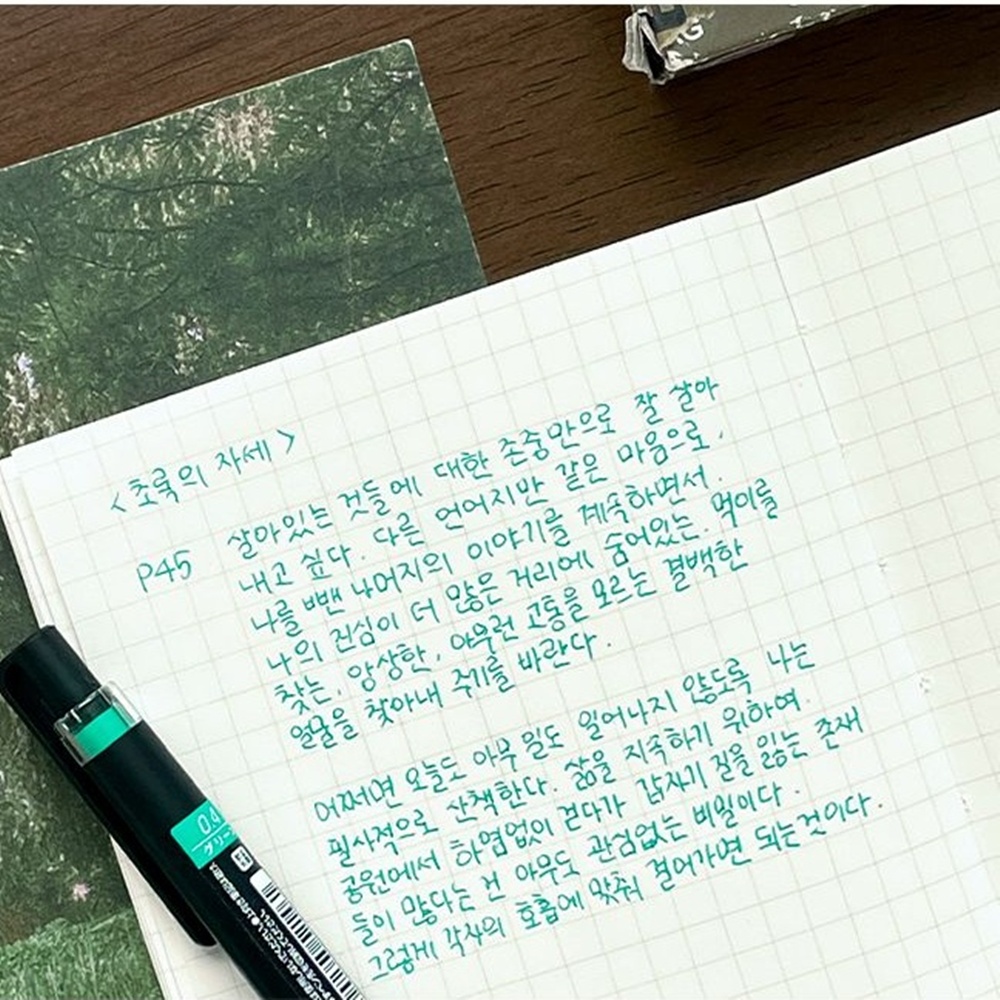 <초록의 자세>
P45
살아있는 것들에 대한 존중만으로 잘 살아
내고 싶다. 다른 언어지만 같은 마음으로,
나를 뺀 나머지의 이야기를 계속하면서.
나의 진심이 더 많은 거리에 숨어있는, 먹이를
찾는, 앙상한, 아무런 고통을 모르는 결백한
얼굴을 찾아내 주기를 바란다.
어쩌면 오늘도 아무 일도 일어나지 않도록 나는
필사적으로 산책한다. 삶을 지속하기 위하여.
공원에서 하염없이 걷다가 갑자기 길을 잃는 존재
들이 많다는 건 아무도 관심없는 비밀이다.
그렇게 각자의 호흡에 맞춰 걸어가면 되는것이다.
0.4
グリーン